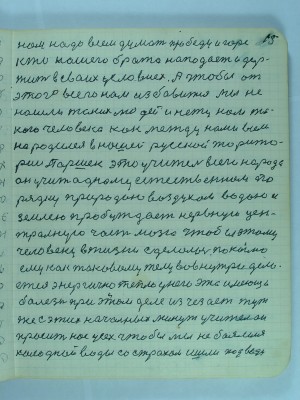 15
нам надо всем думат победи и горе
кто нашего брата нападает и дер-
жит в своих условиех. А чтобы от
этого всего нам избавитя мы не
нашли таких людей и нету нам та-
кого человека как между нами был
народился в нашей русской торито-
рии Паршек это учител всего народа
он учит одному естественном по
рядку природою воздухом водою и
землею пробуждает нервную цен-
тралную часть мозга чтобы этому
человеку в жизни сделолос покойно
ему как таковому телу вовнутри дела-
ется энергично тепло у него эта имеющ
болезн при этом деле изчезает тут
же с этих началных минут учител он
просит нас усех чтобы мы не боялися
холодной воды со страхом ишли